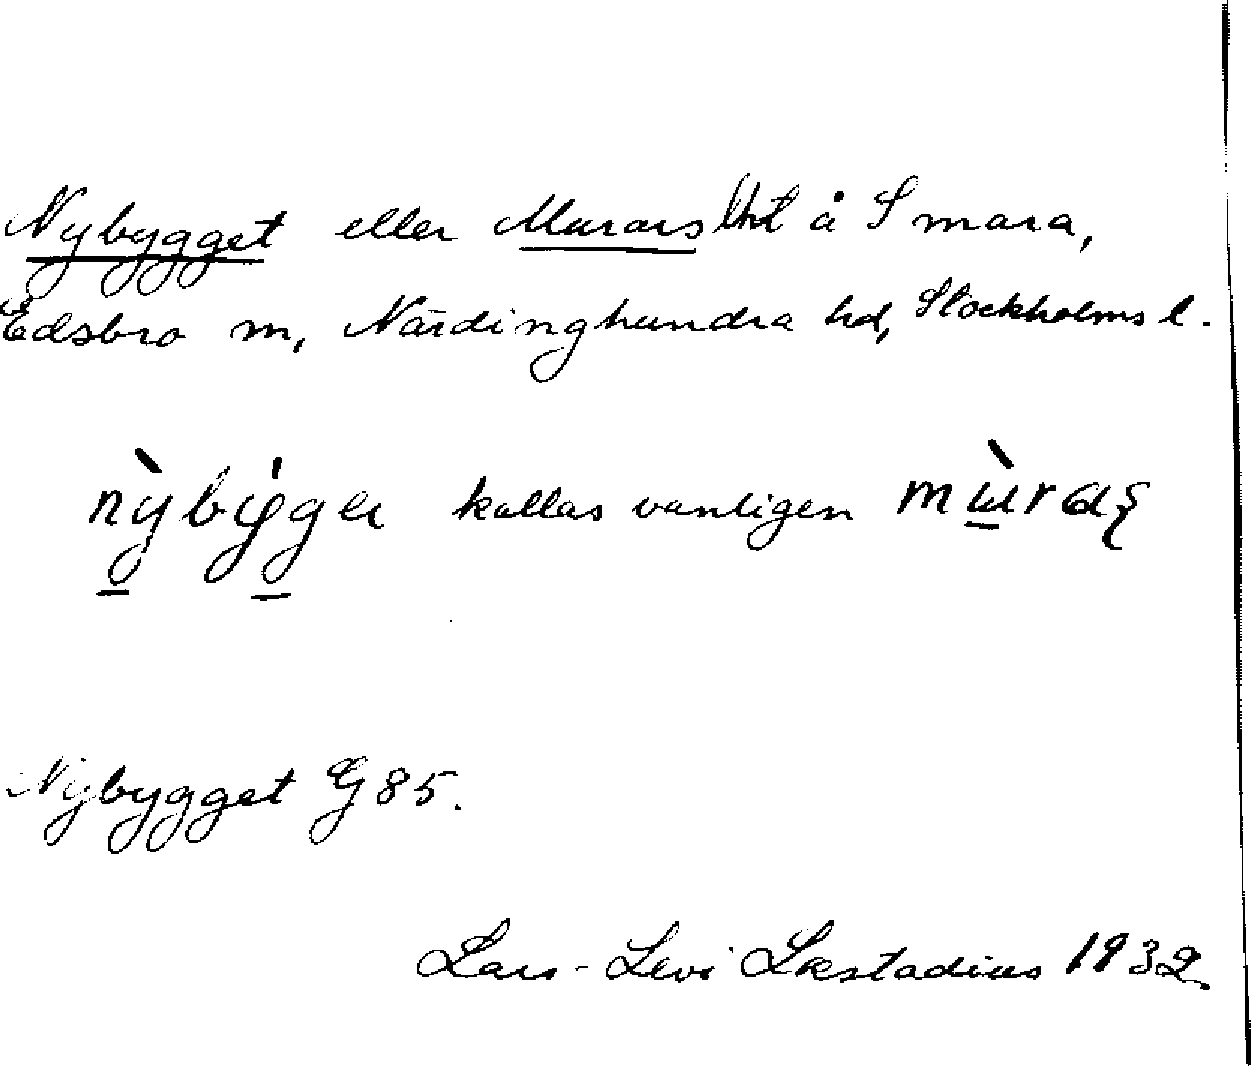 Nybygget eller Murars lht å S mara,
Edsbro sn, Närdinghundra hd, Stockholms l.
kallas vanligen
Nybygget G 85.
Lars-Levi Læstadius 1932